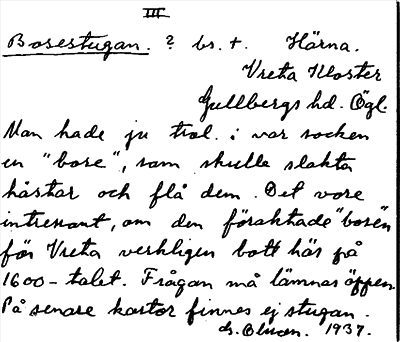 III
Bosestugan. ? br. t. Härna.
Vreta Kloster
Gullbergs hd. Ögl.
Man hade ju trol. i var socken
en "bose", som skulle slakta
hästar och flå dem. Det vore
intressant, om den föraktade "bosen"
för Vreta verkligen bott här på
1600-talet. Frågan må lämnas öppen.
På senare kartor finnes ej stugan.
1937.